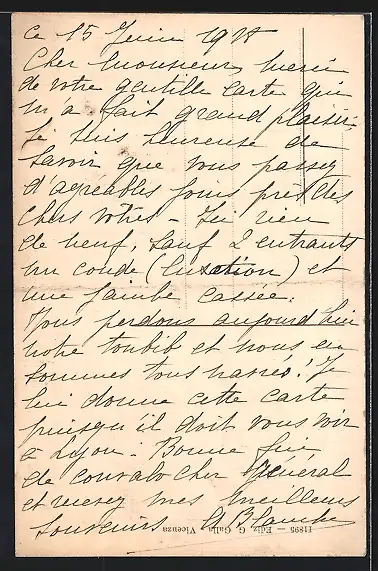 Ce 15 Juin 19
Cher Monsieur, merci
de votre gentille carte qui
m'a fait grand plaisir.
Je suis heureuse de
savoir que vous passez
d'agréables jours près des
chers vôtres - Ici rien
de neuf, sauf 2 entrants
un coude (luxation) et
une jambe cassée.
Nous perdons aujourd'hui
notre toubib et nous en
sommes tous navrés! Je
lui donne cette carte
puisqu'il doit vous voir
à Lyon. Bonne fin
de convalo cher Général
et recevez mes meilleurs
souvenirs.
11895 — Ediz. G. Galla - Vicenza